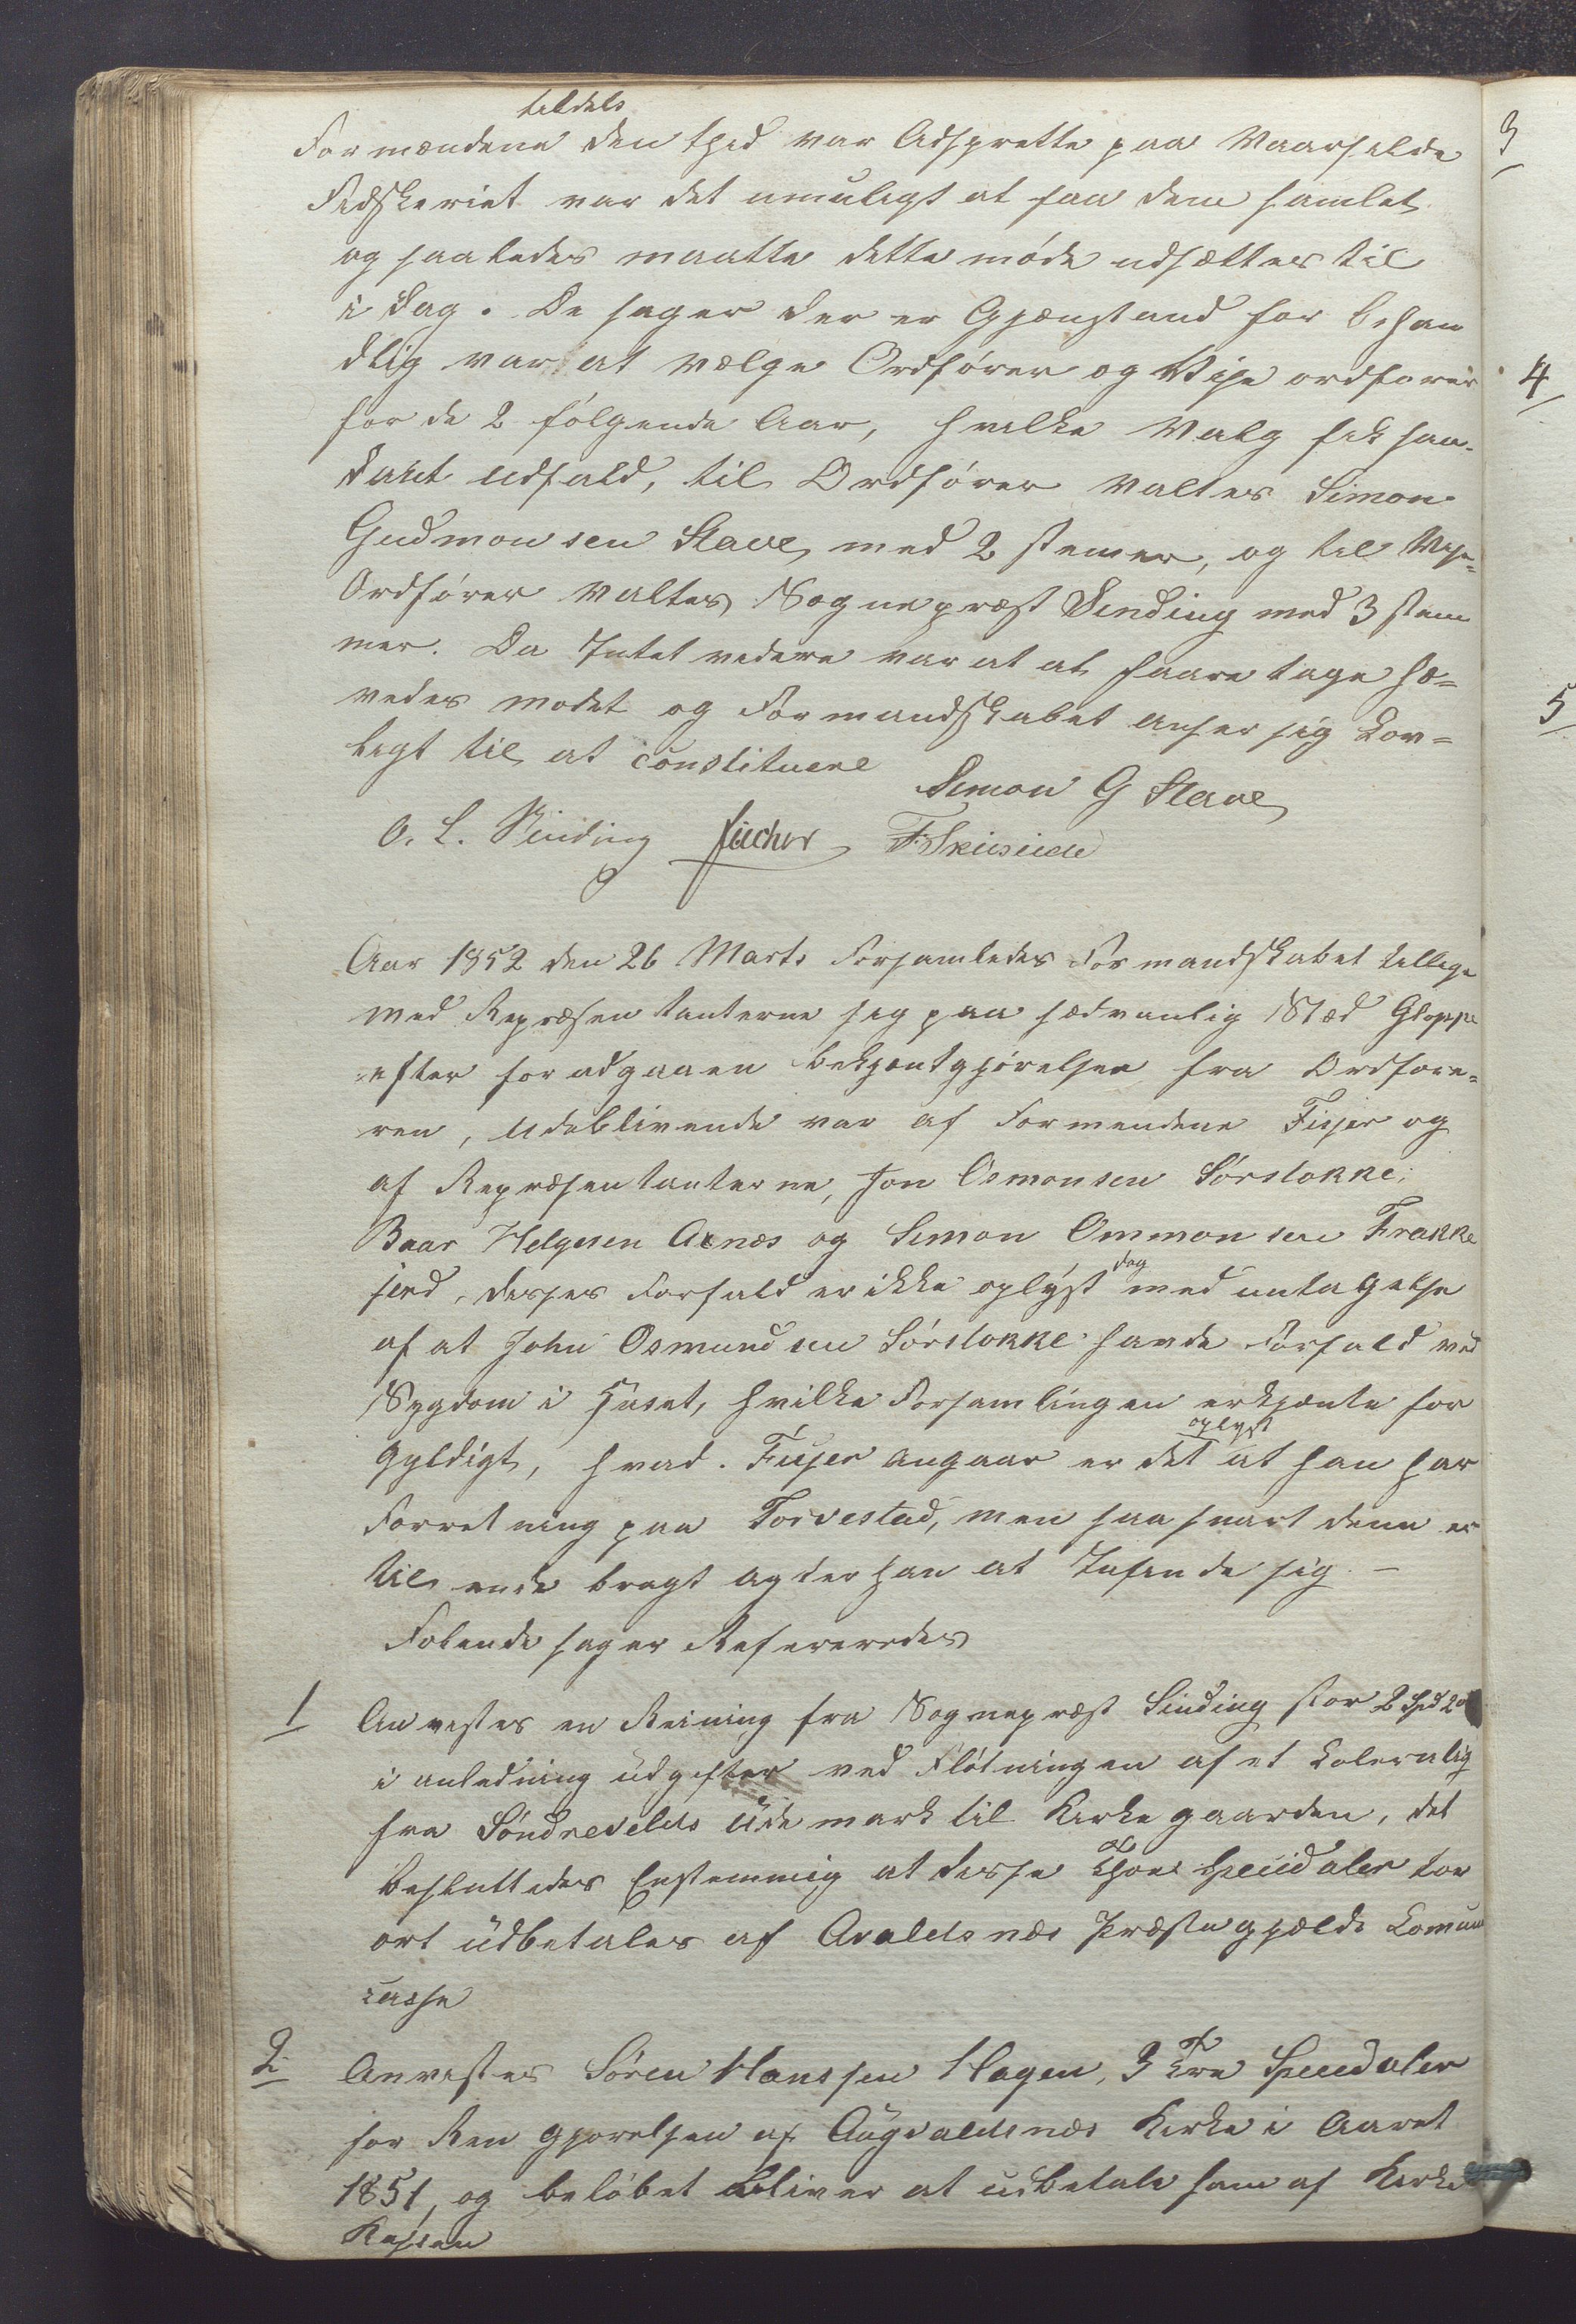 tildels
Formændene den tid var Adsprette paa Vaarsilde
Fidskeriet var det umuligt at faa dem samlet
og saaledes maatte dette møde udsættes til
i Dag. De sager der er Gjænstand for behan
dlig var at vælge Ordfører og Vise ordfører
for de 2 følgende Aar, hvilke Valg fik saa-
dant udfald, til Ordfører valtes Simon
Gudmonsen Stave, med 2 stemer, og til Vise-
Ordfører valtes Sognepræst Sinding med 3 stem
mer. Da Intet videre var at at foare tage hæ-
vedes mødet og Formandskabet anser sig Lov-
ligt til at constituere
Simon G Stave
O. L. Sinding Fischer F Skeisvield
Aar 1852 den 26 Marts Forsamledes Formandskabet tillige
med Repræsentanterne sig paa sædvanlig Stæd Gloppe
efter foradgaaen bekjentgjørelsen fra Ordføre-
ren, udeblivende var af Formendene Fisjer og
af Repræsentanterne, Jon Osmonsen Sørstokke,
Baar Helgesen Axnæs og Simon Ommonsen Frakke
jerd, disses Forfald er ikke oplyst dog med untagelse
af at John Osmundsen Sørstokke havde Forfald ved
Sygdom i Huset, hvilke Forsamlingen erkjente for
Gyldigt, hvad Fisjer angaar er det oplyst at han har
Forretning paa Torvestad, men saa snart denne er
til ende bragt agter han at Infinde sig. –
Folende sager Refereredes
1 Anvistes en Reining fra Sognepræst Sinding stor 2 Spd 2 ort
i anledning udgifter ved Fløtningen af et Colera lig
fra Søndrevelds Udemark til Kirkegaarden, det
besluttedes Enstemmig at disse Thoe Speidaler tor
ort udbetales af Avaldsnæs Præstegjælds Comun
casse
2 Anvistes Søren Hanssen Hagen, 3 Tre Speidaler
for Ren gjørelsen af Augvaldsnæs Kirke i Aaret
1851, og beløbet bliver at udbetale ham af Kirke
Kassen
3
4
5